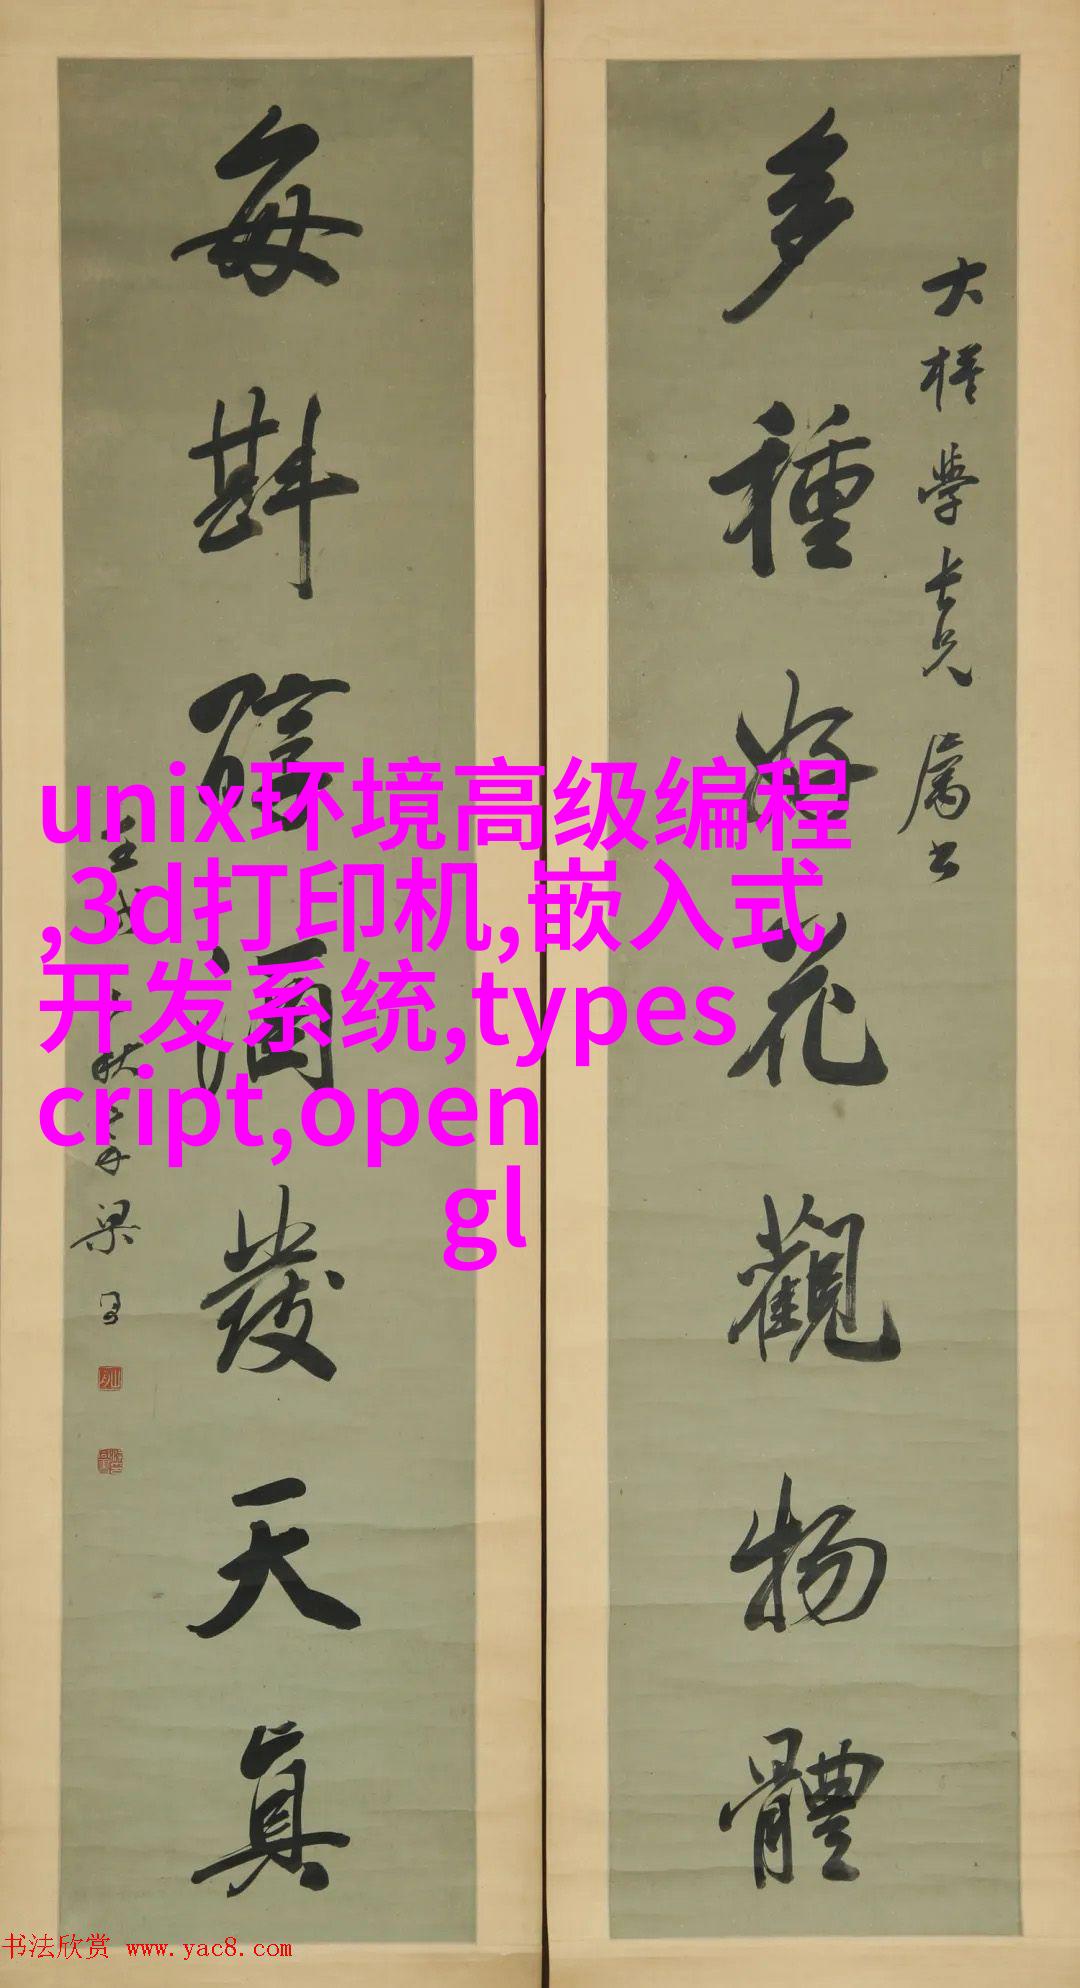 大 學長兄 屬書
多種好花觀物體
每斟 酒發天真
秋 梁
unix环境高级编程
,3d打印机,嵌入式
开发系统,types
cript,open
gl
书法欣赏 www.yac8.com